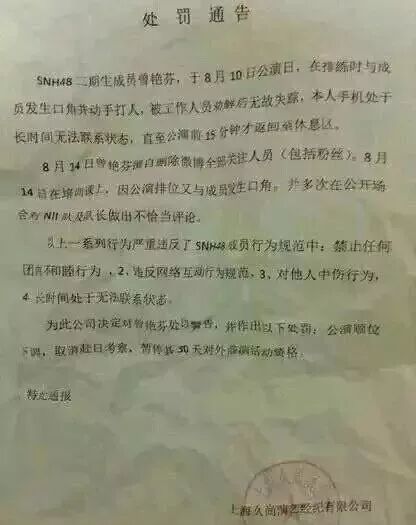 处 罚 通 告
SNH48 二期生成员曾艳芬，于 8 月 10 日公演日，在排练时与成
员发生口角并动手打人，被工作人员劝解后无故失踪，本人手机处于
长时间无法联系状态，直至公演前 15 分钟才返回至休息区。
8 月 14 日曾艳芬擅自删除微博全部关注人员（包括粉丝）。8 月
14 日在培训课上，因公演排位又与成员发生口角。并多次在公开场
合对 NII 队及队长做出不恰当评论。
以上一系列行为严重违反了 SNH48 成员行为规范中：禁止任何
团内不和睦行为，2、违反网络互动行为规范，3、对他人中伤行为，
4 长时间处于无法联系状态。
为此公司决定对曾艳芬处以警告，并作出以下处罚：公演顺位
下调，取消赴日考察，暂停其 30 天对外商演活动资格。
特此通报
上海久尚演艺经纪有限公司